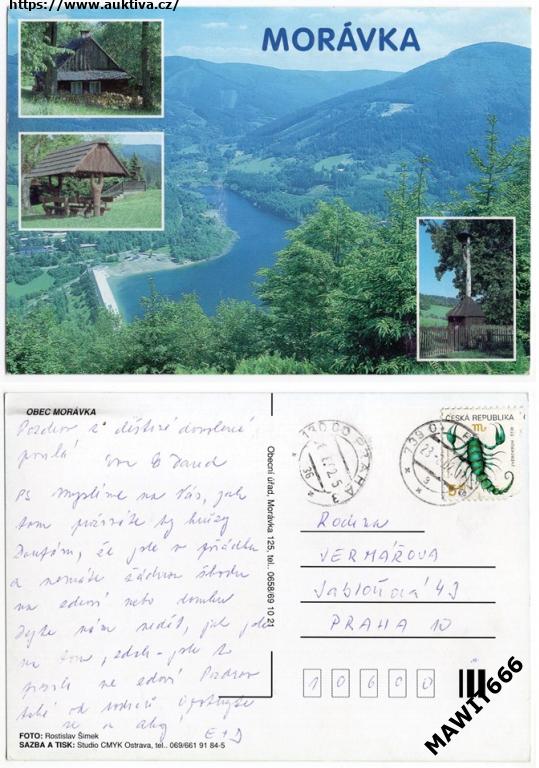 https://www.auktiva.cz/
MORÁVKA
OBEC MORÁVKA
Pozdrav z deštivé dovolené
posílá
Eva & David
PS Myslíme na Vás, jak
tam prožíváte ty hrůzy
Doufám, že jste v pořádku
a nemáte žádnou škodu
na zdraví nebo domku
Dejte nám vědět, jak jste
na tom, zdali jste to
ve zdraví Pozdrav
také od
se a ahoj!
E+D
FOTO: Rostislav Šimek
SAZBA A TISK: Studio CMYK Ostrava, tel.. 069/661 91 84-5
Obecní úřad, Morávka 125, tel.. 0658/69 10 21
130 00 PRAHA 3
36
ČESKÁ REPUBLIKA
Rodina
VERMÁŘOVA
Jabloňová 43
PRAHA 10
10600
MAWI1666